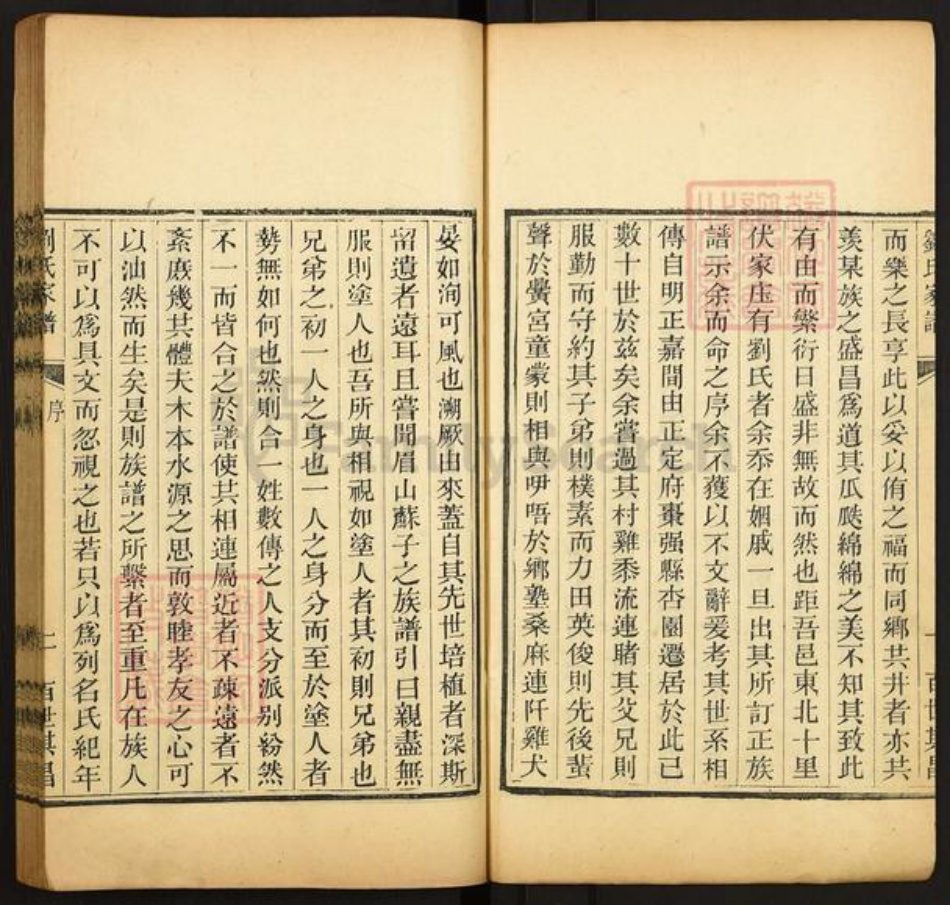 劉氏家譜
而樂之長享此以妥以侑之福而同鄉共井者亦共
羨某族之盛昌為道其瓜瓞綿綿之美不知其致此
有由而繁衍日盛非無故而然也距吾邑東北十里
伏家庄有劉氏者余忝在姻戚一旦出其所訂正族
譜示余而命之序余不獲以不文辭爰考其世系相
傳自明正嘉間由正定府棗强縣杏園遷居於此已
數十世於兹矣余嘗過其村雞黍流連睹其父兄則
服勤而守約其子弟則樸素而力田英俊則先後蜚
聲於黌宮童蒙則相與咿唔於鄉塾桑麻連阡雞犬
晏如洵可風也溯厥由來蓋自其先世培植者深斯
留遺者遠耳且嘗聞眉山蘇子之族譜引曰親盡無
服則塗人也吾所與相視如塗人者其初則兄弟也
兄弟之初一人之身也一人之身分而至於塗人者
勢無如何也然則合一姓數傳之人支分派别紛然
不一而皆合之於譜使其相連屬近者不疎遠者不
紊庶幾其體夫木本水源之思而敦睦孝友之心可
以油然而生矣是則族譜之所繫者至重凡在族人
不可以為具文而忽視之也若只以為列名氏紀年
劉氏家譜 序 二 百世其昌
FamilySearch